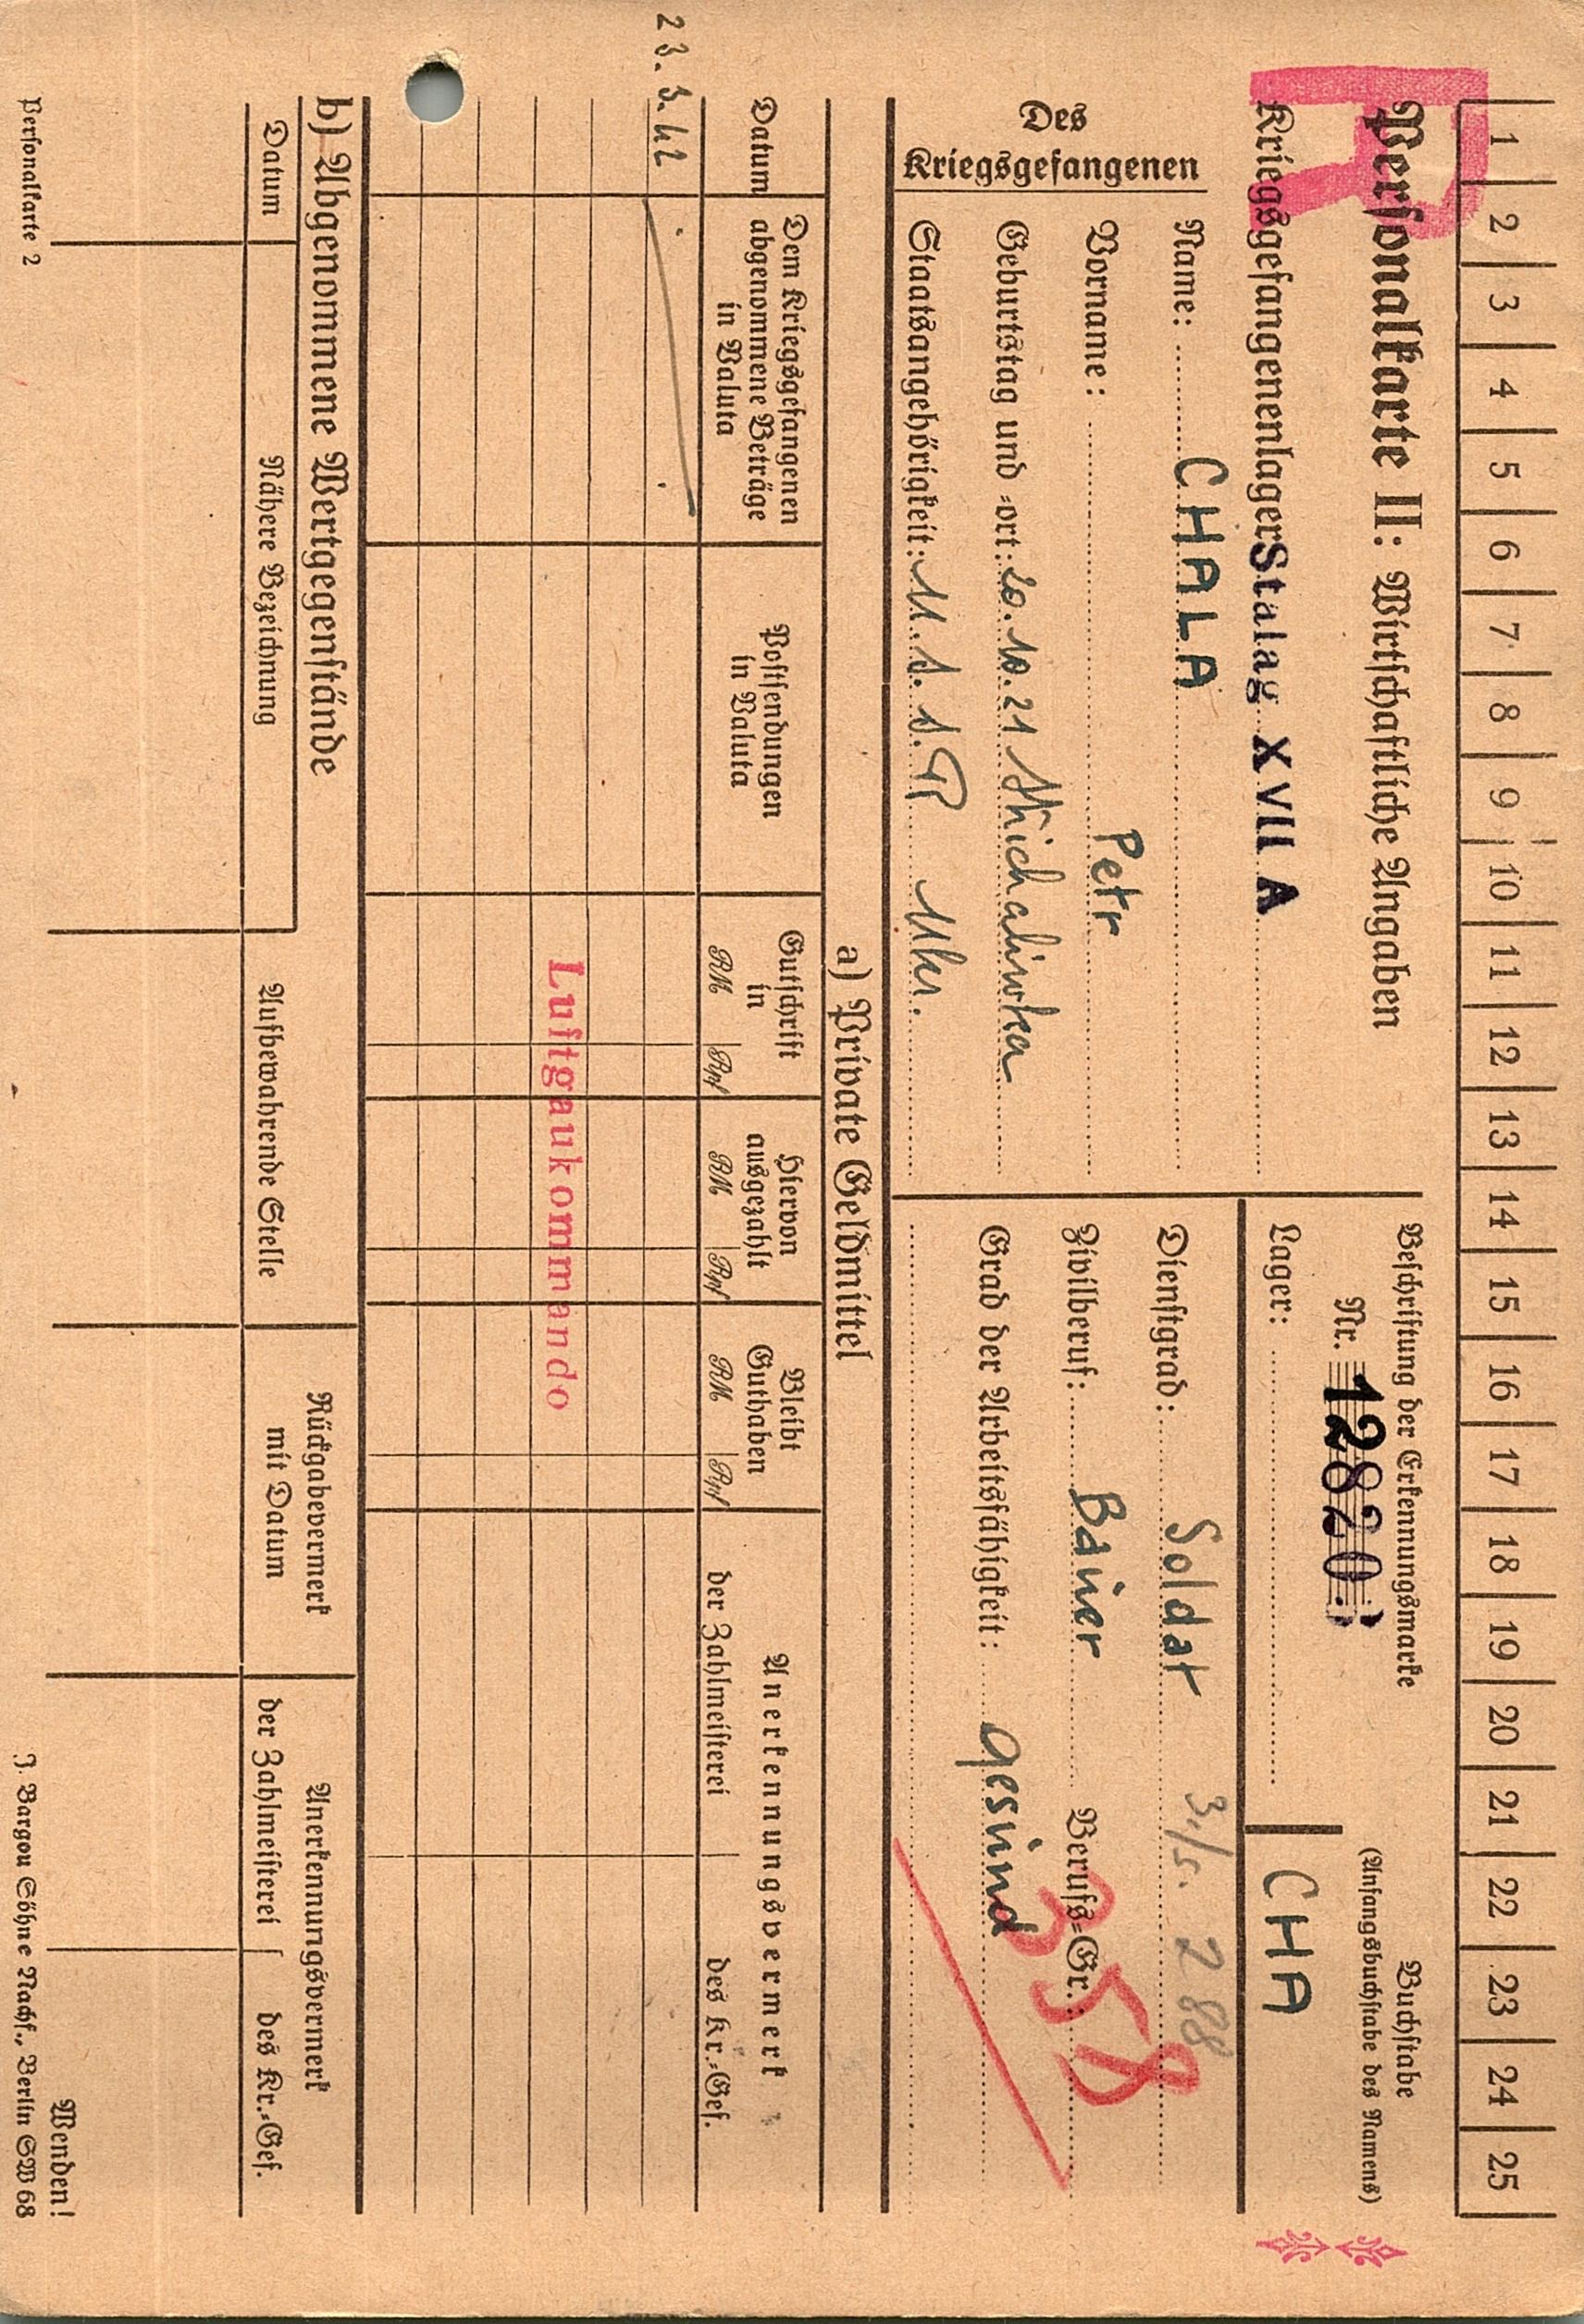 1 2 3 4 5 6 7 8 9 10 11 12 13 14 15 16 17 18 19 20 21 22 23 24 25
R
Personalkarte II: Wirtschaftliche Angaben
Kriegsgefangenenlager Stalag XVII A
Beschriftung der Erkennungsmarke
Nr. 12820
Lager:
Buchstabe
(Anfangsbuchstabe des Namens)
CHA
Des
Kriegsgefangenen
Name: CHALA
Vorname: Petr
Geburtstag und =ort: 20.10.21 Michaliwka
Staatsangehörigkeit: U.S.S.R Ukr.
Dienstgrad: Soldat 288
Zivilberuf: Bauer Berufs=Gr.: 358
Grad der Arbeitsfähigkeit: gesund
a) Private Geldmittel
Datum
Dem Kriegsgefangenen
abgenommene Beträge
in Valuta
Postsendungen
in Valuta
Gutschrift
in
RM Rpf
Hiervon
ausgezahlt
RM Rpf
Bleibt
Guthaben
RM Rpf
Anerkennungsvermerk
der Zahlmeisterei
des Kr.=Gef.
23.3.42
Luftgaukommando
b) Abgenommene Wertgegenstände
Datum
Nähere Bezeichnung
Aufbewahrende Stelle
Rückgabevermerk
mit Datum
Anerkennungsvermerk
der Zahlmeisterei
des Kr.=Gef.
Wenden!
Personalkarte 2
J. Bargou Söhne Nachf., Berlin SW 68